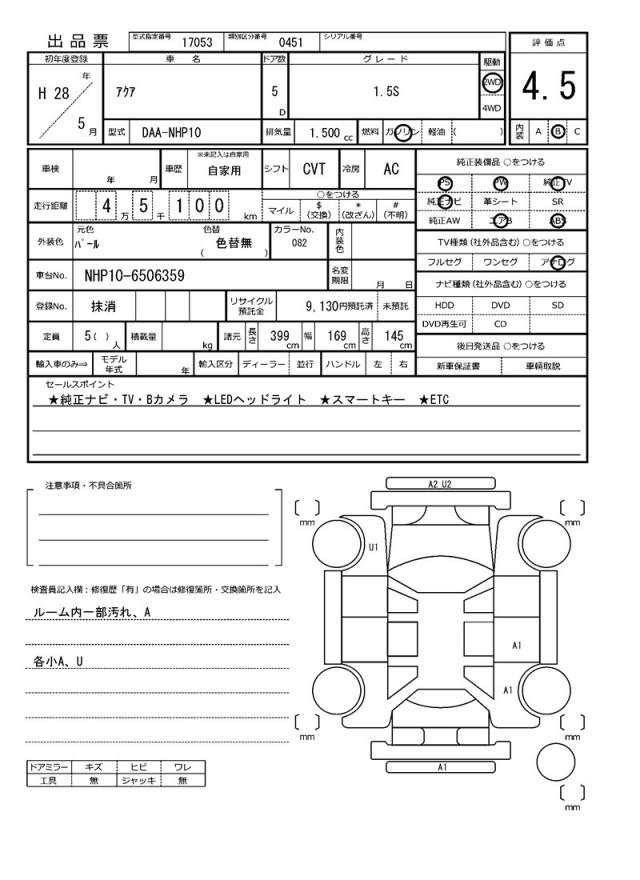 出品票 型式指定番号 17053 類別区分番号 0451 シリアル番号
評価点
初年度登録 車名 ドア数 グレード 駆動
H 28 年 アクア 5 D 1.5S 2WD 4.5
5 月 4WD
型式 DAA-NHP10 排気量 1.500 cc 燃料 ガソリン 軽油 ( ) 内装 A B C
車検 年 月 車歴 ※未記入は自家用 自家用 シフト CVT 冷房 AC 純正装備品 ○をつける
PS PW 純正TV
走行距離 4 万 5 千 1 0 0 km ○をつける 純正ナビ 革シート SR
マイル $(交換) *(改ざん) #(不明) 純正AW エアB ABS
外装色 元色 パール 色替 ( 色替無 ) カラーNo. 082 内装色 TV種類 (社外品含む) ○をつける
フルセグ ワンセグ アナログ
車台No. NHP10-6506359 名変期限 月 日 ナビ種類 (社外品含む) ○をつける
登録No. 抹消 リサイクル預託金 9,130円預託済 未預託 HDD DVD SD
DVD再生可 CD
定員 5( ) 人 積載量 kg 諸元 長さ 399 cm 幅 169 cm 高さ 145 cm 後日発送品 ○をつける
輸入車のみ⇒ モデル年式 年 輸入区分 ディーラー 並行 ハンドル 左 右 新車保証書 車輌取説
セールスポイント
★純正ナビ・TV・Bカメラ ★LEDヘッドライト ★スマートキー ★ETC
注意事項・不具合箇所
A2 U2
mm mm
U1
検査員記入欄:修復歴「有」の場合は修復箇所・交換箇所を記入
ルーム内一部汚れ、A
A1
各小A、U
A1
mm mm
A1
ドアミラー キズ ヒビ ワレ
工具 無 ジャッキ 無
mm